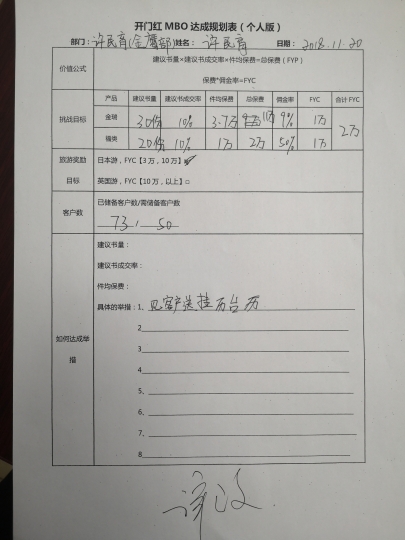 开门红 MBO 达成规划表（个人版）
部门：许民育(金鹰部)姓名：许民育 日期：2018.11.20
价值公式
建议书量×建议书成交率×件均保费=总保费（FYP）
保费*佣金率=FYC
挑战目标
产品 建议书量 建议书成交率 件均保费 总保费 佣金率 FYC 合计 FYC
金瑞 30份 10% 3.7万 11万 9% 1万 2万
福类 20份 10% 1万 2万 50% 1万
旅游奖励
目标
日本游，FYC【3万，10万】
英国游，FYC【10万，以上】□
客户数
已储备客户数/需储备客户数
73 / 50
如何达成举
措
建议书量：
建议书成交率：
件均保费：
具体的举措：1、见客户送挂历台历
2
3
4
5、
6、
7、
8